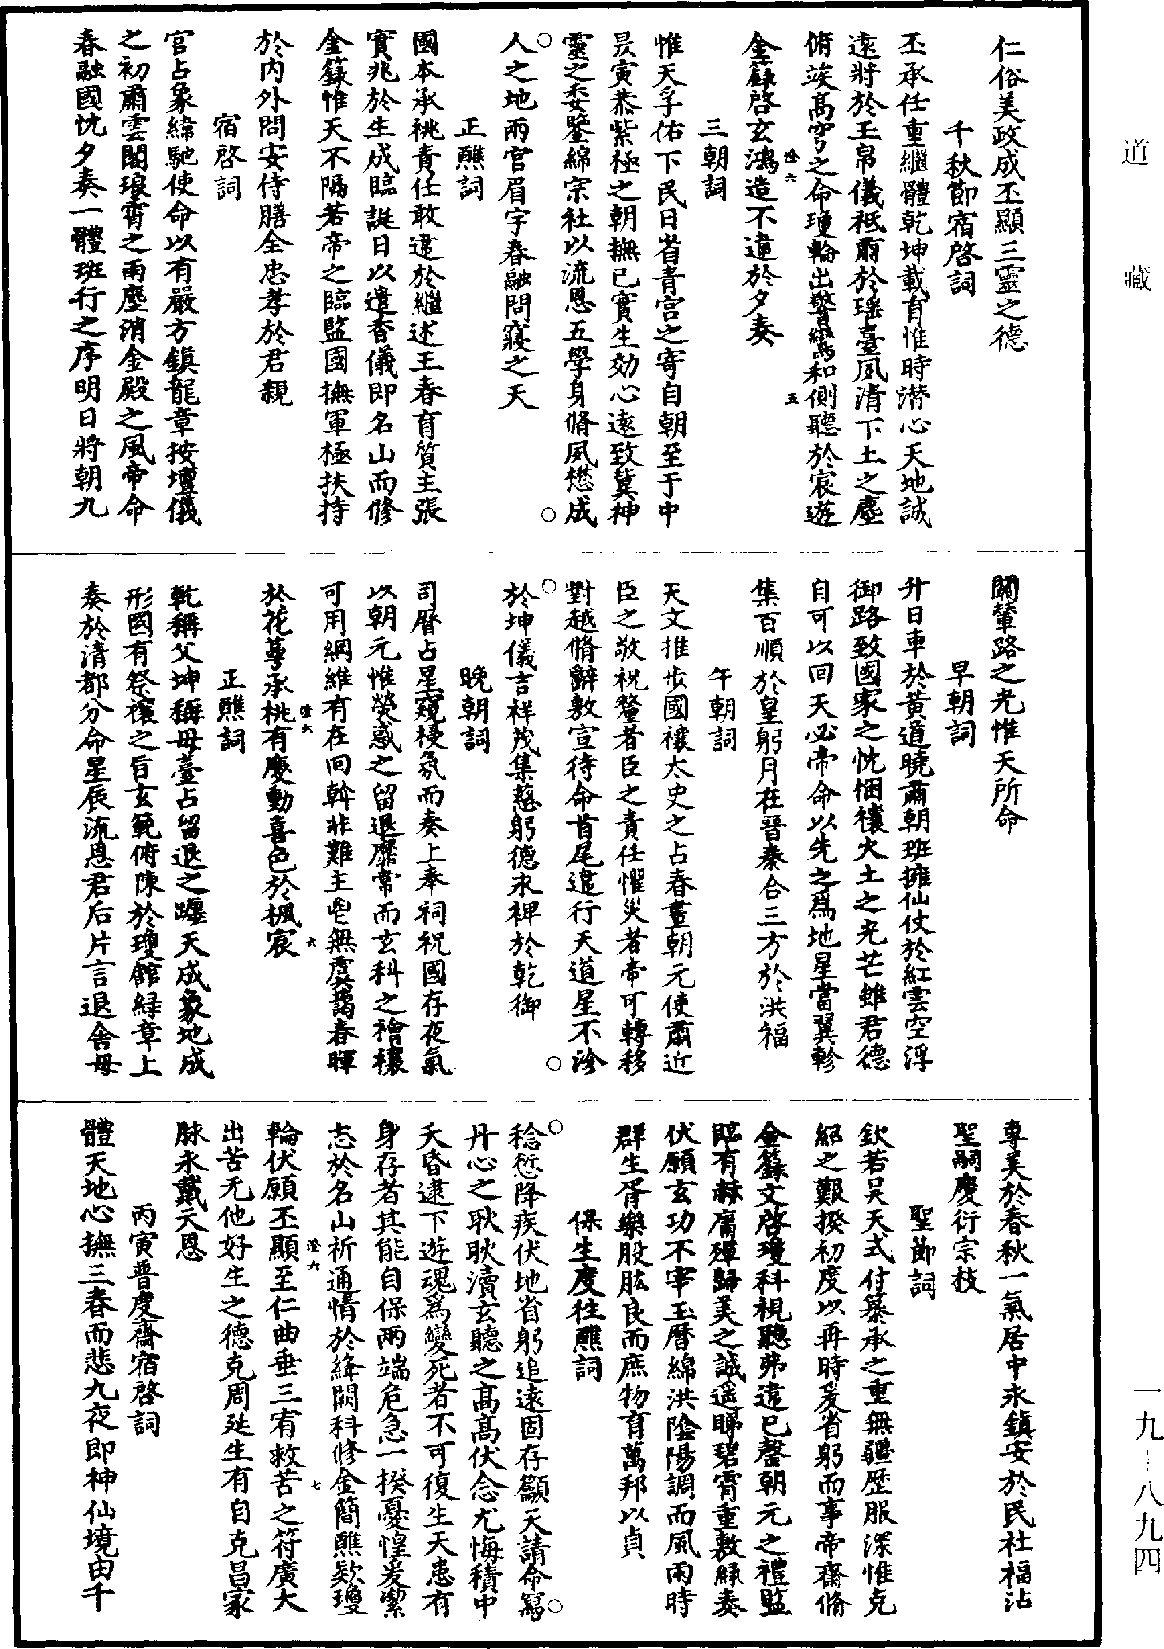 道藏
仁俗美政成丕顯三靈之德
千秋節宿啓詞
丕承任重繼體乾坤載育惟時潛心天地誠
遠將於玉帛儀祗肅於瑤臺風清下土之塵
俯竢高穹之命瓊輪出警鸞和側聽於宸遊
金籙啓玄鴻造不違於夕奏
三朝詞
惟天孚佑下民日省青宮之寄自朝至于中
昃寅恭紫極之朝撫已實生効心遠致冀神
靈之委鑒綿宗社以流恩五學身脩夙懋成
人之地兩官眉宇春融問寢之天
正醮詞
國本承祧責任敢違於繼述王春育質主張
實兆於生成臨誕日以遣香儀即名山而修
金籙惟天不隔若帝之臨監國撫軍極扶持
於內外問安侍膳全忠孝於君親
宿啓詞
官占象緯馳使命以有嚴方鎮龍章按壇儀
之初肅雲開琅霄之雨塵消金殿之風帝命
春融國忱夕奏一體班行之序明日將朝九
關輦路之光惟天所命
早朝詞
升日車於黃道曉肅朝班擁仙仗於紅雲空浮
御路致國家之忱悃禳火土之光芒雖君德
自可以回天必帝命以先之爲地星當翼軫
集百順於皇躬月在晉秦合三方於洪福
午朝詞
天文推步國禳太史之占春晝朝元使肅近
臣之敬祝釐者臣之責任懼災者帝可轉移
對越脩辭敷宣待命首尾違行天道星不沴
於坤儀吉祥茂集慈躬德永裨於乾御
晚朝詞
司曆占星窺祲氛而奏上奉祠祝國存夜氣
以朝元惟熒惑之留退靡常而玄科之禬禳
可用綱維有在回斡非難主鬯無虞藹春暉
於花萼承桃有慶動喜色於楓宸
正醮詞
乾稱父坤稱母臺占留退之躔天成象地成
形國有祭禳之旨玄範俯陳於瓊館緑章上
奏於清都分命星辰流恩君后片言退舍毋
專美於春秋一氣居中永鎮安於民社福沾
聖嗣慶衍宗枝
聖節詞
欽若昊天式付纂承之重無疆歷服深惟克
紹之艱揆初度以再時爰省躬而事帝齋脩
金籙文啓瓊科視聽弗違已罄朝元之禮監
臨有赫庸殫歸美之誠遙睇碧霄重敷緑奏
伏願玄功不宰玉曆綿洪陰陽調而風雨時
群生胥樂股肱良而庶物育萬邦以貞
保生度徃醮詞
稔愆降疾伏地省躬追遠固存籲天請命寫
丹心之耿耿瀆玄聽之高高伏念尤悔積中
夭昏逮下遊魂爲變死者不可復生天患有
身存者其能自保兩端危急一揆憂惶爰潔
志於名山祈通情於絳闕科修金簡醮款瓊
輪伏願丕顯至仁曲垂三宥救苦之符廣大
出苦无他好生之德克周延生有自克昌家
脉永戴天恩
丙寅普度齋宿啓詞
體天地心撫三春而悲九夜即神仙境由千
一九－八九四